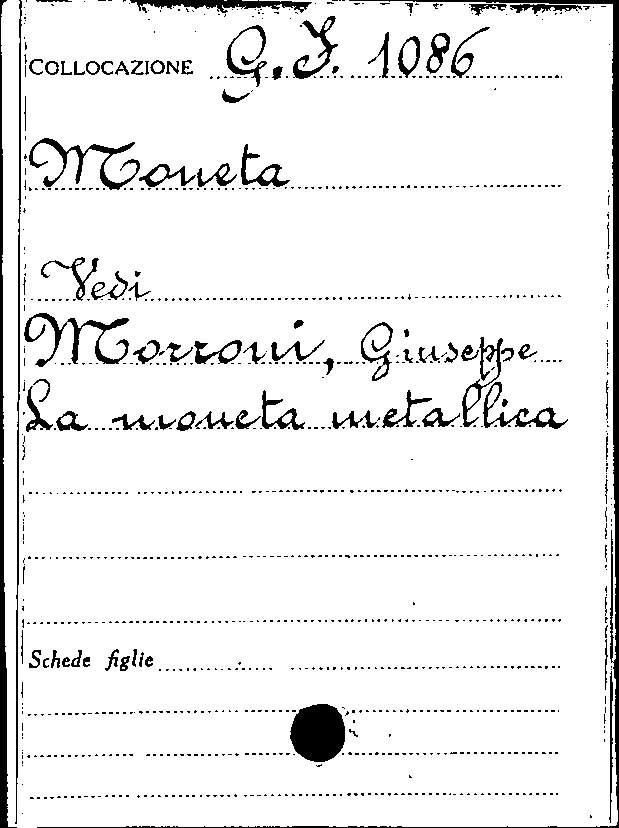 COLLOCAZIONE G. I. 1086
Moneta
Vedi
Morroni, Giuseppe
La moneta metallica
Schede figlie